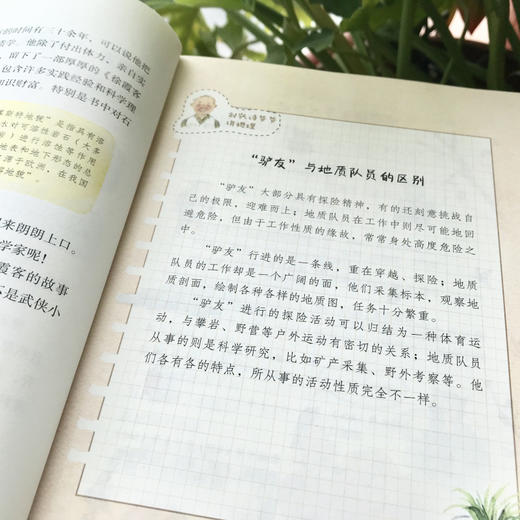 的时间有三十余年，可以说他把
学。他除了付出体力，亲自实
留下了一部厚厚的《徐霞客
包含许多实践经验和科学理
识财富。特别是书中对石
斯特地貌”是指具有溶
水对可溶性岩石（大多
）进行溶蚀等作用
地表和地下形态的总
源于欧洲，在我国
溶地貌”。
来朗朗上口。
学家呢！
霞客的故事
不是武侠小
刘兴诗爷爷
讲地理
“驴友”与地质队员的区别
“驴友”大部分具有探险精神，有的还刻意挑战自
己的极限，迎难而上；地质队员在工作中则尽可能地回
避危险，但由于工作性质的缘故，常常身处高度危险之
中。
“驴友”行进的是一条线，重在穿越、探险；地质
队员的工作却是一个广阔的面，他们采集标本，观察地
质剖面，绘制各种各样的地质图，任务十分繁重。
“驴友”进行的探险活动可以归结为一种体育运
动，与攀岩、野营等户外运动有密切的关系；地质队员
从事的则是科学研究，比如矿产采集、野外考察等。他
们各有各的特点，所从事的活动性质完全不一样。